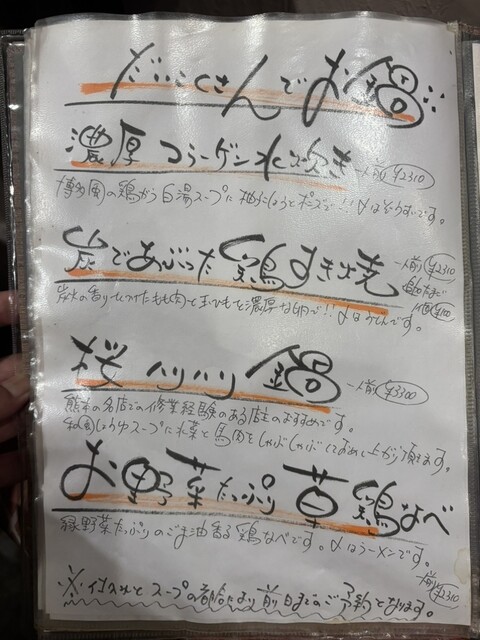 だいこくさんでお鍋!!
濃厚コラーゲン水炊き 一人前 ¥2310
博多風の鶏がら白湯スープに柚子こしょうとポンズで!!〆はぞうすいです。
炭であぶった鶏すき焼 一人前 ¥2310
炭火の香りをつけたもも肉と玉ひもと濃厚な卵で!!〆はうどんです。
1個 ¥100
桜ハリハリ鍋 一人前 ¥3300
熊本の名店での修業経験のある店主のおすすめです。
和風しょうゆスープに水菜と馬肉をしゃぶしゃぶしてお召し上がり頂きます。
お野菜たっぷり草鶏なべ
緑野菜たっぷりのごま油香る鶏なべです。〆はラーメンです。
一人前 ¥2310
※仕入れとスープの都合により前日までのご予約となります。